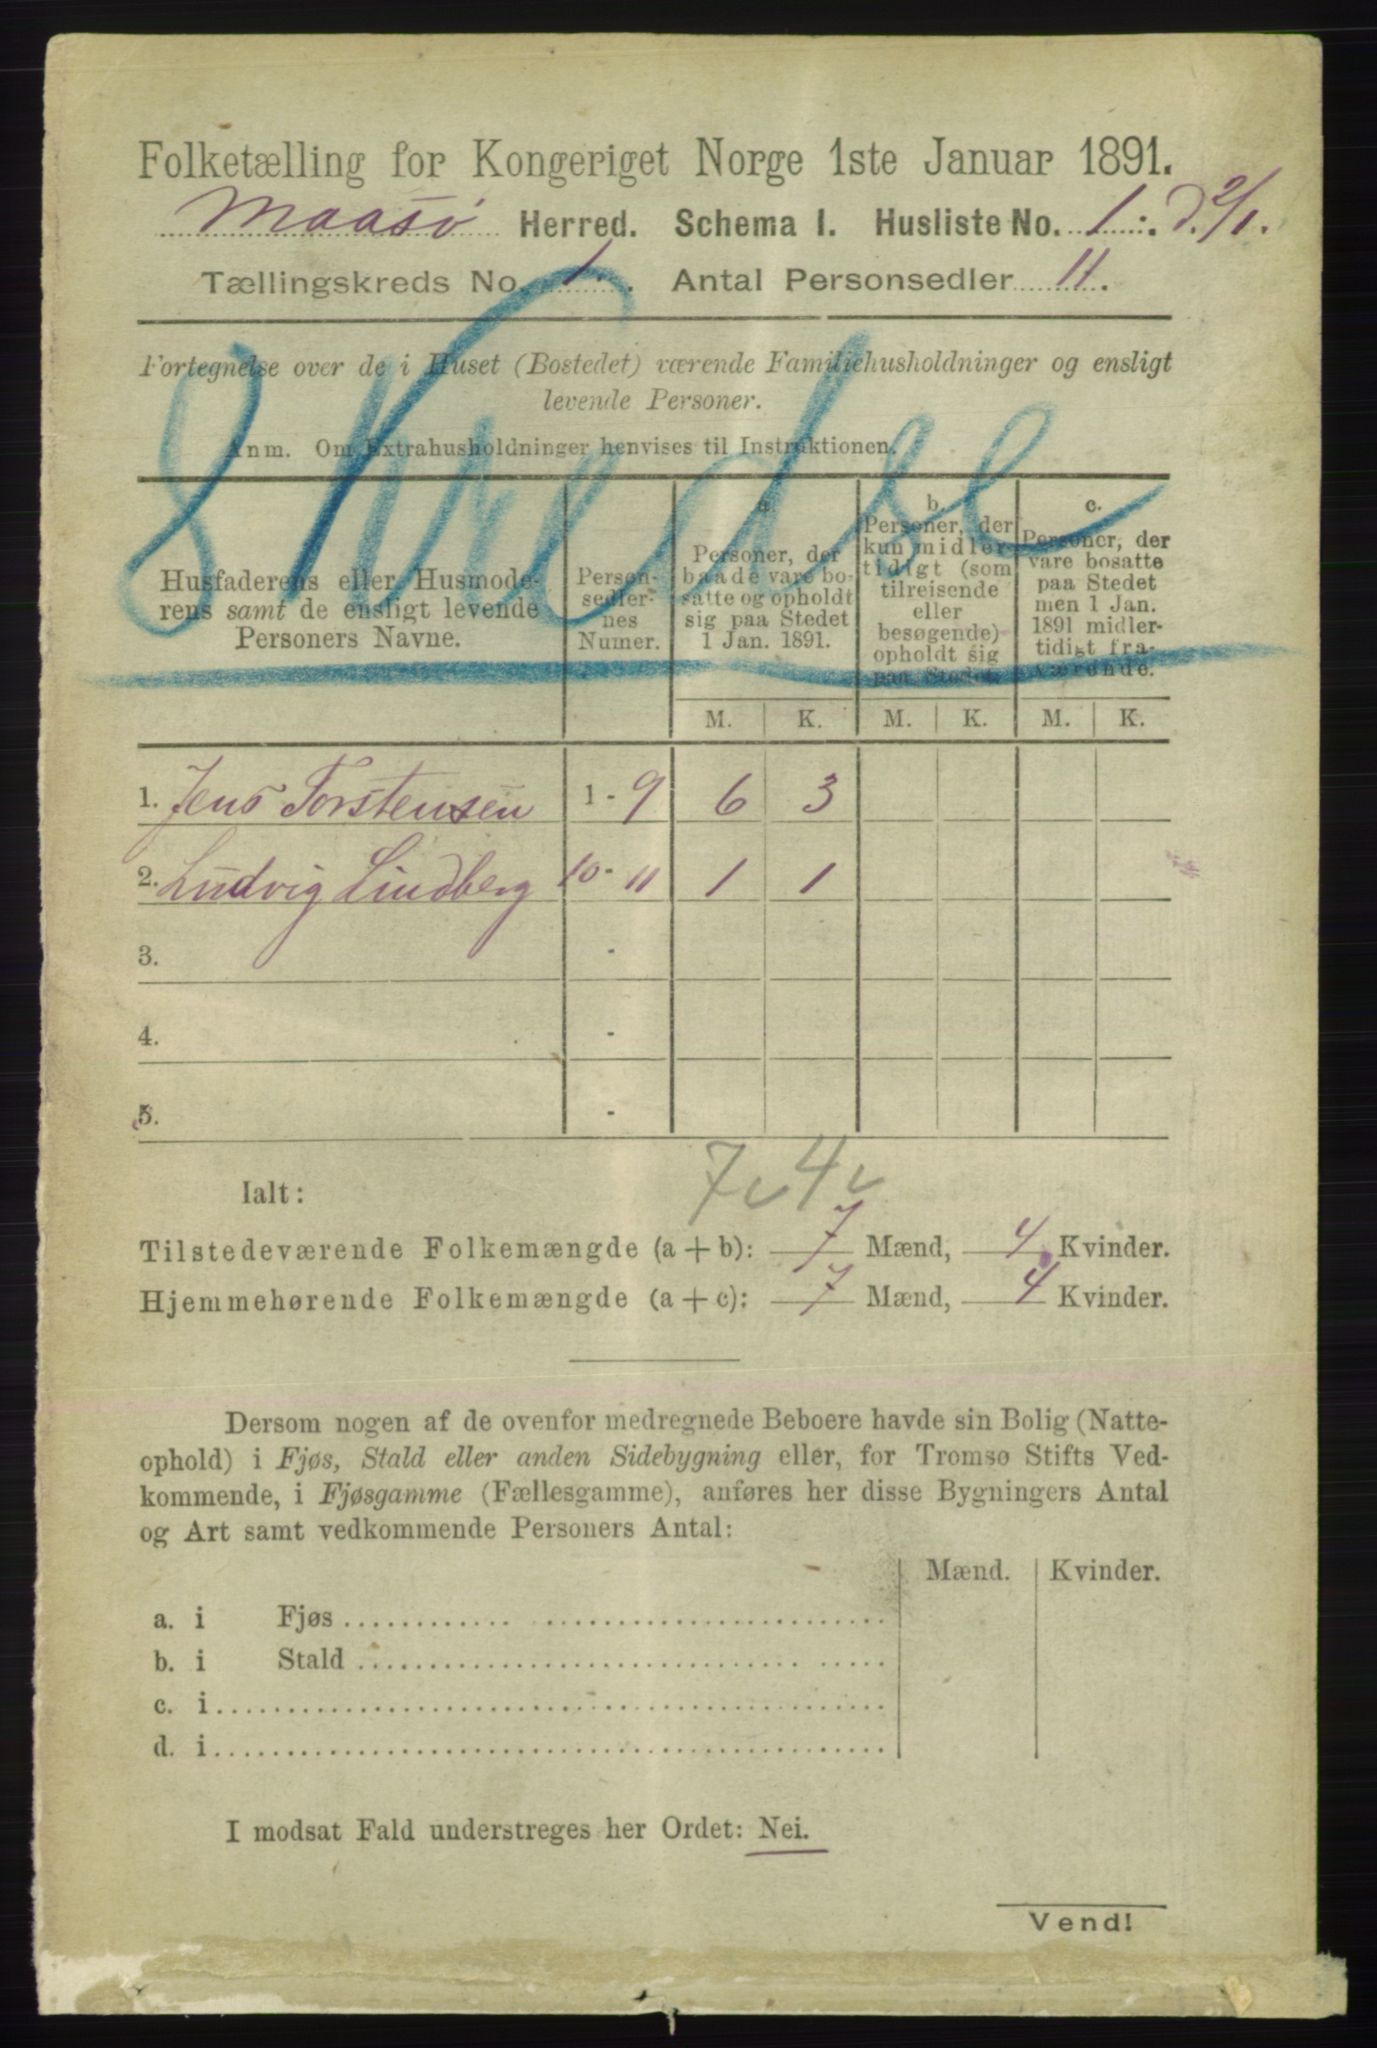 Folketælling for Kongeriget Norge 1ste Januar 1891.
Maasø Herred. Schema I. Husliste No. 1. d. 2/1.
Tællingskreds No. 1. Antal Personsedler 11.
Fortegnelse over de i Huset (Bostedet) værende Familiehusholdninger og ensligt
levende Personer.
Anm. Om Extrahusholdninger henvises til Instruktionen.
8 Kredse
Husfaderens eller Husmode-
rens samt de ensligt levende
Personers Navne.
Person-
sedler-
nes
Numer.
a.
Personer, der
baade vare bo-
satte og opholdt
sig paa Stedet
1 Jan. 1891.
b.
Personer, der
kun midler-
tidigt (som
tilreisende
eller
besøgende)
opholdt sig
paa Stedet.
c.
Personer, der
vare bosatte
paa Stedet
men 1 Jan.
1891 midler-
tidigt fra-
værende.
M. K. M. K. M. K.
1. Jens Torstensen 1 - 9 6 3
2. Ludvig Lindberg 10 - 11 1 1
3. -
4. -
5. -
7 4
Ialt:
Tilstedeværende Folkemængde (a + b): 7 Mænd, 4 Kvinder.
Hjemmehørende Folkemængde (a + c): 7 Mænd, 4 Kvinder.
Dersom nogen af de ovenfor medregnede Beboere havde sin Bolig (Natte-
ophold) i Fjøs, Stald eller anden Sidebygning eller, for Tromsø Stifts Ved-
kommende, i Fjøsgamme (Fællesgamme), anføres her disse Bygningers Antal
og Art samt vedkommende Personers Antal:
Mænd. Kvinder.
a. i Fjøs
b. i Stald
c. i
d. i
I modsat Fald understreges her Ordet: Nei.
Vend!